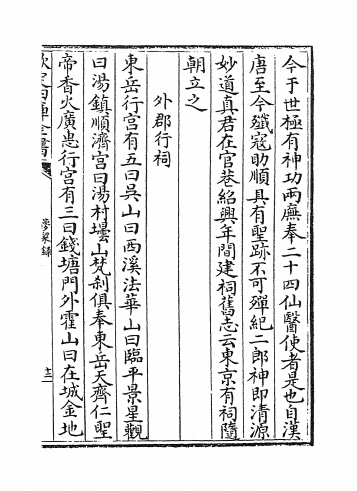 今于世極有神功兩廡奉二十四仙醫使者是也自漢
唐至今殲寇助順具有聖跡不可殫紀二郎神即清源
妙道真君在官巷紹興年間建祠舊志云東京有祠隨
朝立之
外郡行祠
東岳行宮有五曰吳山曰西溪法華山曰臨平景星觀
曰湯鎮順濟宮曰湯村壜山梵刹俱奉東岳天齊仁聖
帝香火廣惠行宮有三曰錢塘門外霍山曰在城金地
欽定四庫全書
夢粱録
十三